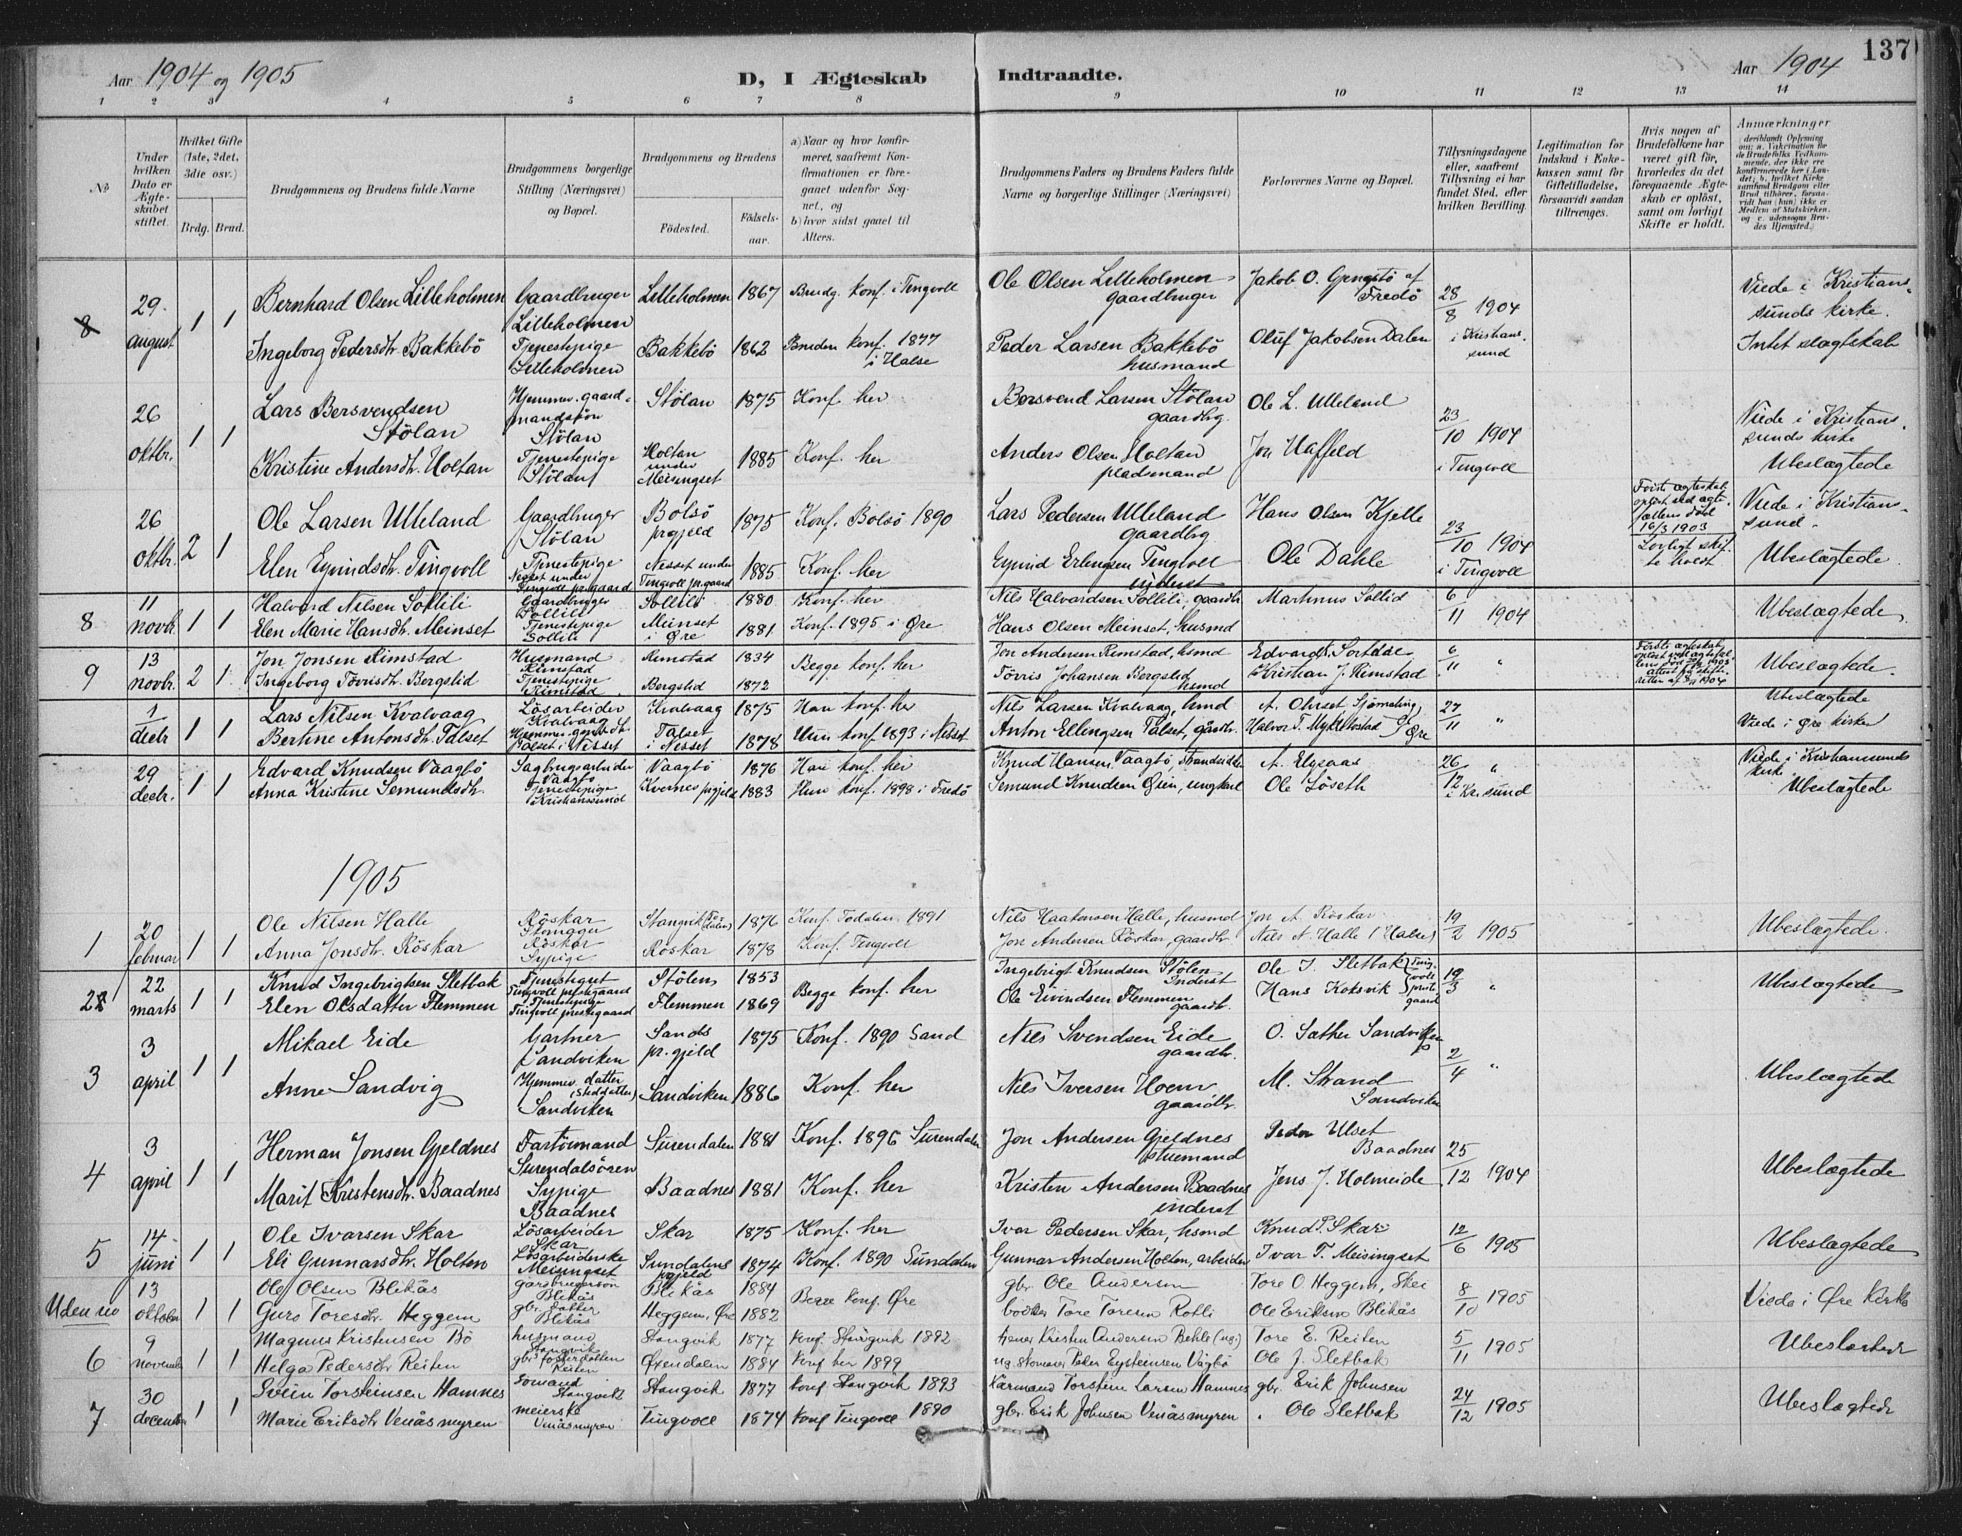 137
Aar 1904 og 1905
D, I Ægteskab Indtraadte.
Aar 1904
1 2 3 4 5 6 7 8 9 10 11 12 13 14
No
Under hvilken Dato er Ægteskabet stiftet.
Hvilket Gifte (1ste, 2det, 3die osv.)
Brdg. Brud.
Brudgommens og Brudens fulde Navne
Brudgommens borgerlige Stilling (Næringsvei) og Bopæl.
Brudgommens og Brudens
Fødested.
Fødselsaar.
a) Naar og hvor konfirmeret, saafremt Konfirmationen er foregaaet udenfor Sognet, og
b) hvor sidst gaaet til Alters.
Brudgommens Faders og Brudens Faders fulde Navne og borgerlige Stillinger (Næringsvei)
Forlovernes Navne og Bopæl.
Tillysningsdagene eller, saafremt Tillysning ei har fundet Sted, efter hvilken Bevilling
Legitimation for Indskud i Enkekassen samt for Giftetilladelse, forsaavidt saadan tiltrænges.
Hvis nogen af Brudefolkene har været gift før, hvorledes da det foregaaende Ægteskab er opløst, samt om lovligt Skifte er holdt.
Anmærkninger
8 29 august 1 1
Bernhard Olsen Lilleholmen Gaardbruger Lilleholmen Lilleholmen 1867 Brudg. konf. i Tingvoll Ole Olsen Lilleholmen gaardbruger Jakob O. Gengstö af Fredö 28/8 1904 Viede i Kristianssunds kirke.
Ingeborg Pedersdtr. Bakkebö Tjenestepige Lilleholmen Bakkebö 1862 Bruden konf. 1877 i Halse Peder Larsen Bakkebö husmand Oluf Jakobsen Dalen i Kristianssund Intet slægtskab
26 oktbr. 1 1
Lars Bersvendsen Stölan Hjemmev. gaardmandssön Stölan Stölan 1875 Konf. her Bersvend Larsen Stölan gaardbrg. Ole L. Ulleland 23/10 1904 Viede i Kristianssunds kirke
Kristine Andersdtr. Holtan Tjenestepige Stölan Holtan under Meisingset 1885 Konf. her Anders Olsen Holtan pladsmand Jon Haffeld i Tingvoll Ubeslægtede
26 oktbr. 2 1
Ole Larsen Ulleland Gaardbruger Stölan Bolsö prgjeld 1875 Konf. Bolsö 1890 Lars Pedersen Ulleland gaardbrg Hans Olsen Kjelle 23/10 1904 Förste ægteskab oplöst ved ægtefællens död 16/3 1903 Viede i Kristianssund.
Elen Eyvindsdtr. Tingvoll Tjenestepige Nesset under Tingvoll pr.gaard Nesset under Tingvoll pr.gaard 1885 Konf. her Eyvind Erlingsen Tingvoll inderst Ole Dahle i Tingvoll Lovligt skifte holdt Ubeslægtede
8 11 novbr. 1 1
Halvard Nilsen Sollili Gaardbruger Sollili Sollili 1880 Konf. her Nils Halvardsen Sollili, gaardbr. Martinus Sollid 6/11 1904 Ubeslægtede
Elen Marie Hansdtr. Meinset Tjenestepige Sollili Meinset i Øre 1881 Konf. 1895 i Øre Hans Olsen Meinset, husmd
9 13 novbr. 2 1
Jon Jonsen Rimstad Husmand Rimstad Rimstad 1834 Begge konf. her Jon Andersen Rimstad, hsmd Edvard Sordal 6/11 " Ubeslægtede
Ingeborg Törrisdtr. Bergslid Tjenestepige Rimstad Bergslid 1872 Törris Johansen Bergslid hsmd Kristian J. Rimstad
1 decbr. 1 1
Lars Nilsen Kvalvaag Lösarbeider Kvalvaag Kvalvaag 1875 Han konf. her Nils Larsen Kvalvaag, hmd A. Ohrset Sjömæling 27/11 " Ubeslægtede
Bertine Antonsdtr. Talset Talset i Nesset Talset i Nesset 1878 Hun konf. 1893 i Nesset Anton Ellingsen Talset, gårdbr. Halvor T. Myklebostad Øre Viede i Øre kirke
29 decbr. 1 1
Edvard Knudsen Vaagbö Sagbrugsarbeider Vaagbö Vaagbö 1876 Han konf. her Knud Hansen Vaagbö, Strandsidder A. Elgsaas 26/12 " Viede i Kristianssunds kirke
Anna Kristine Semundsdtr. Tjenestepige Kristianssund Kvernes prgjeld 1883 Hun konf. 1898 i Fredö Semund Knudsen Øien, ungkarl Ole Löseth i Kr.sund Ubeslægtede
1905
1 20 februar 1 1
Ole Nilsen Halle Röskar Stangvik (Todalen) 1876 Konf. Todalen 1891 Nils Haakonsen Halle, husmd Jon A. Röskar 19/2 1905 Ubeslægtede.
Anna Jonsdtr. Röskar Röskar Sypige Röskar 1878 Konf. Tingvoll Jon Andersen Röskar, gaardbr. Nils N. Halle (Halse)
2 22 marts 1 1
Knud Ingebrigtsen Sletbak Tjenestegut Tingvoll prestegaard Stölen 1853 Begge konf. her Ingebrigt Knudsen Stölen Inderst Ole I. Sletbak 19/3 " Ubeslægtede
Elen Olsdatter Flemmen Tjenestepige Tingvoll prestegaard Flemmen 1869 Ole Eivindsen Flemmen gaardbr. Hans Koksvik
3 3 april 1 1
Mikael Eide Gartner Sandviken Sands pr.gjeld 1875 Konf. 1890 Sand Nils Svendsen Eide gaardbr. O. Sæther Sandviken 2/4 " Ubeslægtede
Anne Sandvig Hjemmev. datter (Steddatter) Sandviken Sandviken 1886 Konf. her Nils Iversen Hoem gaardbr. M. Strand Sandviken
4 3 april 1 1
Herman Jonsen Gjeldnes Fartöimand Surendalsören Surendalen 1881 Konf. 1896 Surendalen Jon Andersen Gjeldnes stuemand Peder Ulset Baadnes 25/12 1904 Ubeslægtede
Marit Kristensdtr. Baadnes Sypige Baadnes Baadnes 1881 Konf. her Kristen Andersen Baadnes inderst Jens J. Holmeide
5 14 juni 1 1
Ole Ivarsen Skar Lösarbeider Skar Skar 1875 Konf. her Ivar Pedersen Skar, hsmd Knud P. Skar 12/6 1905 Ubeslægtede
Eli Gunnarsdtr. Holten Lösarbeiderske Meisingset Sundalens prgjeld 1874 Konf. 1890 Sundalen Gunnar Andersen Holten, arbeider Ivar T. Meisingset
Uden no 13 oktober 1 1
Olof Olsen Blikås gårdbrugersön Blikås Blikås 1884 Begge konf. Øre gbr. Ole Andersen Tore O. Heggem, Skei 8/10 1905 Viede i Øre Kirke
Guro Toresdtr. Heggem gbr. datter Blikås Heggem, Øre 1882 Tore Toresen Rotli Ole Eriksen Blikås
6 9 november 1 1
Magnus Kristensen Bö husmand Stangvik Stangvik 1877 konf Stangvik 1892 Kristen Andersen Behle 5/11 1905 Tore E. Reiten Ubeslægtede
Helga Pedersdtr Reiten gbr. fosterdatter Reiten Øksendalen 1884 konf her 1899 Peder Eysteinsen Vågbö Ole J. Sletbak
7 30 december 1 1
Svein Torsteinsen Hamnes Stangvik Stangvik 1877 konf. Stangvik 1893 Torstein Larsen Hamnes gbr. Erik Johnsen 24/12 1905 Ubeslægtede
Marie Eriksdtr Venåsmyren meierske Venåsmyren Tingvoll 1874 konf Tingvoll 1890 gbr. Erik Johnsen Venåsmyren Ole Sletbak